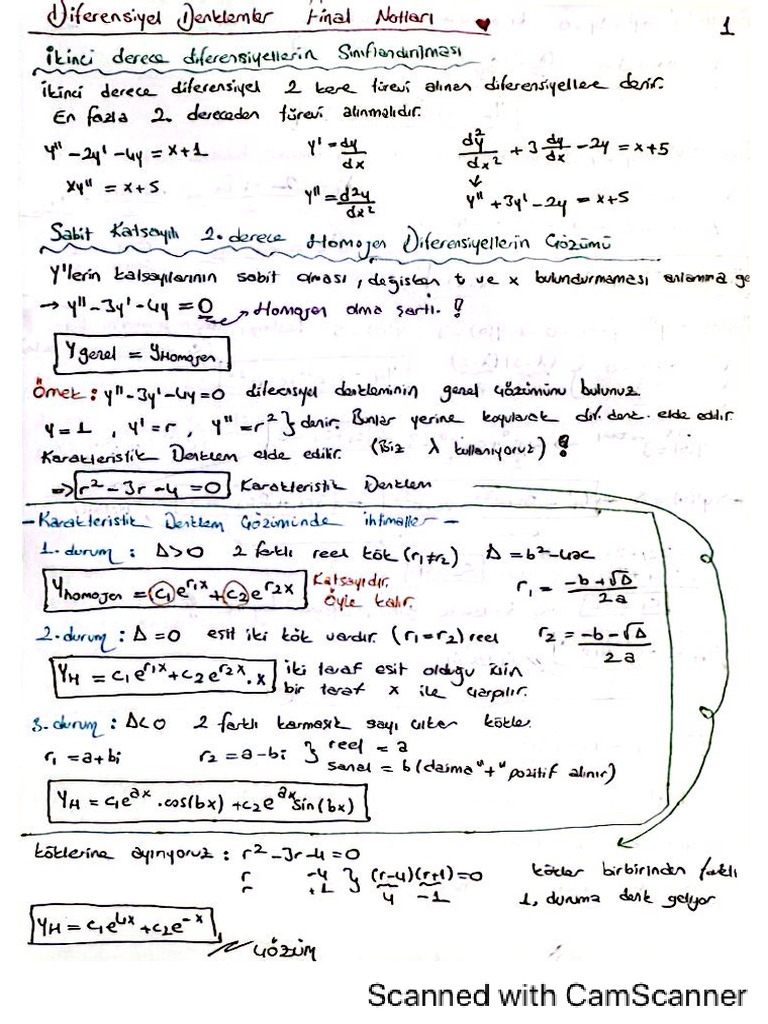 Diferensiyel Denklemler Final Notları ♥ 1
İkinci derece diferensiyellerin Sınıflandırılması
İkinci derece diferensiyel 2 kere türevi alınan diferensiyellere denir.
En fazla 2. dereceden türevi alınmalıdır.
y'' - 2y' - 4y = x+1 y' = dy/dx d²y/dx² + 3 dy/dx - 2y = x+5
xy'' = x+5. y'' = d²y/dx² ↓ y'' + 3y' - 2y = x+5
Sabit Katsayılı 2. derece Homojen Diferensiyellerin Çözümü
Y'lerin katsayılarının sabit olması, değişken t ve x bulundurmaması anlamına ge
→ y'' - 3y' - 4y = 0 → Homojen olma şartı. !
Ygenel = YHomojen.
Örnek: y'' - 3y' - 4y = 0 diferensiyel denkleminin genel çözümünü bulunuz.
y = 1, y' = r, y'' = r² } denir. Bunlar yerine koyularak dif. denk. elde edilir.
Karakteristik Denklem elde edilir. (Biz λ kullanıyoruz) !
⇒ r² - 3r - 4 = 0 Karakteristik Denklem
- Karakteristik Denklem Çözümünde ihtimaller -
1. durum : Δ>0 2 farklı reel kök (r₁≠r₂) Δ = b² - 4ac
Yhomojen = c₁e^{r₁x} + c₂e^{r₂x} Katsayıdır. Öyle kalır. r₁ = (-b+√Δ)/2a
2. durum : Δ = 0 eşit iki kök vardır. (r₁ = r₂) reel r₂ = (-b-√Δ)/2a
YH = c₁e^{r₁x} + c₂e^{r₂x}.x iki taraf eşit olduğu için
bir taraf x ile çarpılır.
3. durum : Δ<0 2 farklı karmaşık sayı çıkar kökler.
r₁ = a+bi r₂ = a-bi } reel = a
sanal = b (daima "+" pozitif alınır)
YH = c₁e^{ax}.cos(bx) + c₂e^{ax}sin(bx)
köklerine ayırıyoruz : r² - 3r - 4 = 0
r -4 } (r-4)(r+1) = 0 kökler birbirinden farklı
r +1 4 -1 1. duruma denk geliyor
YH = c₁e^{4x} + c₂e^{-x}
ÇÖZÜM
Scanned with CamScanner